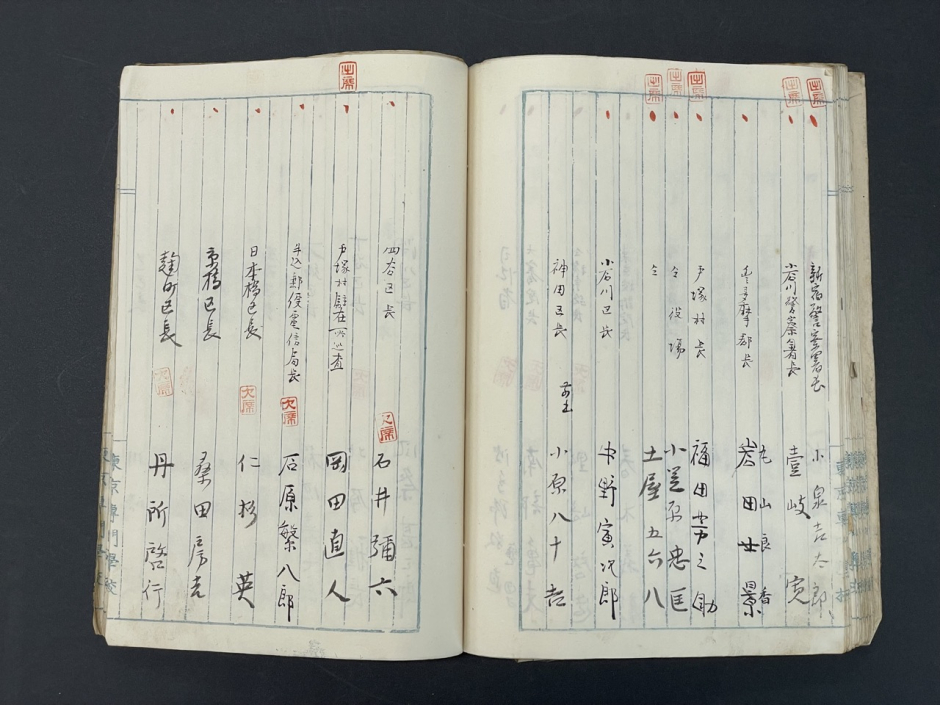 出席 新宿警察署長 小泉吉太郎
出席 小石川警察署長 壹岐 寛
豊多摩郡長 岩田 丸山良香
出席 戸塚村長 福田芳之助
出席 仝役場 小笠原忠匡
出席 仝 土屋五六八
小石川区長 中野寅次郎
神田区長 小原八十吉
四谷区長 欠席 石井彌六
出席 戸塚村駐在巡査 岡田直人
牛込郵便電信局長 欠席 石原繁八郎
日本橋区長 欠席 仁杉 英
京橋区長 桑田房吉
麹町区長 欠席 丹所啓行
東京専門學校